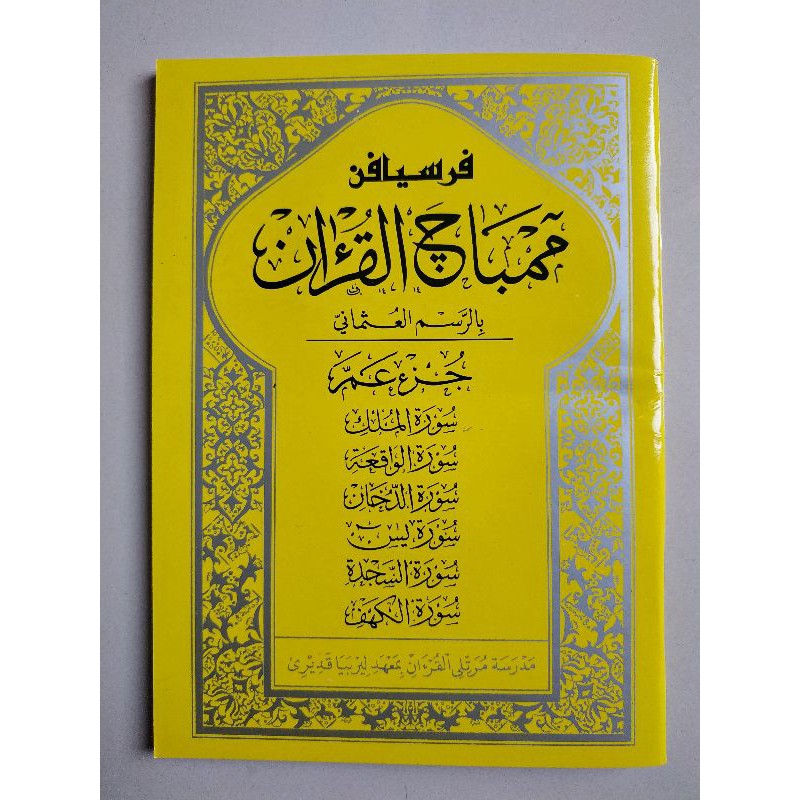 فرسيافن
ممباچ القُرءان
بِالرَّسم العُثمانيّ
جُزء عَمَّ
سُورَة المُلك
سُورَة الوَاقعَة
سُورَة الدُّخَان
سُورَة يسٓ
سُورَة السَّجدَة
سُورَة الكَهف
مَدرَسَة مُرَتِّلِي القُرءَان بِمَعهَد لِيربَيَا قَدِيرِي